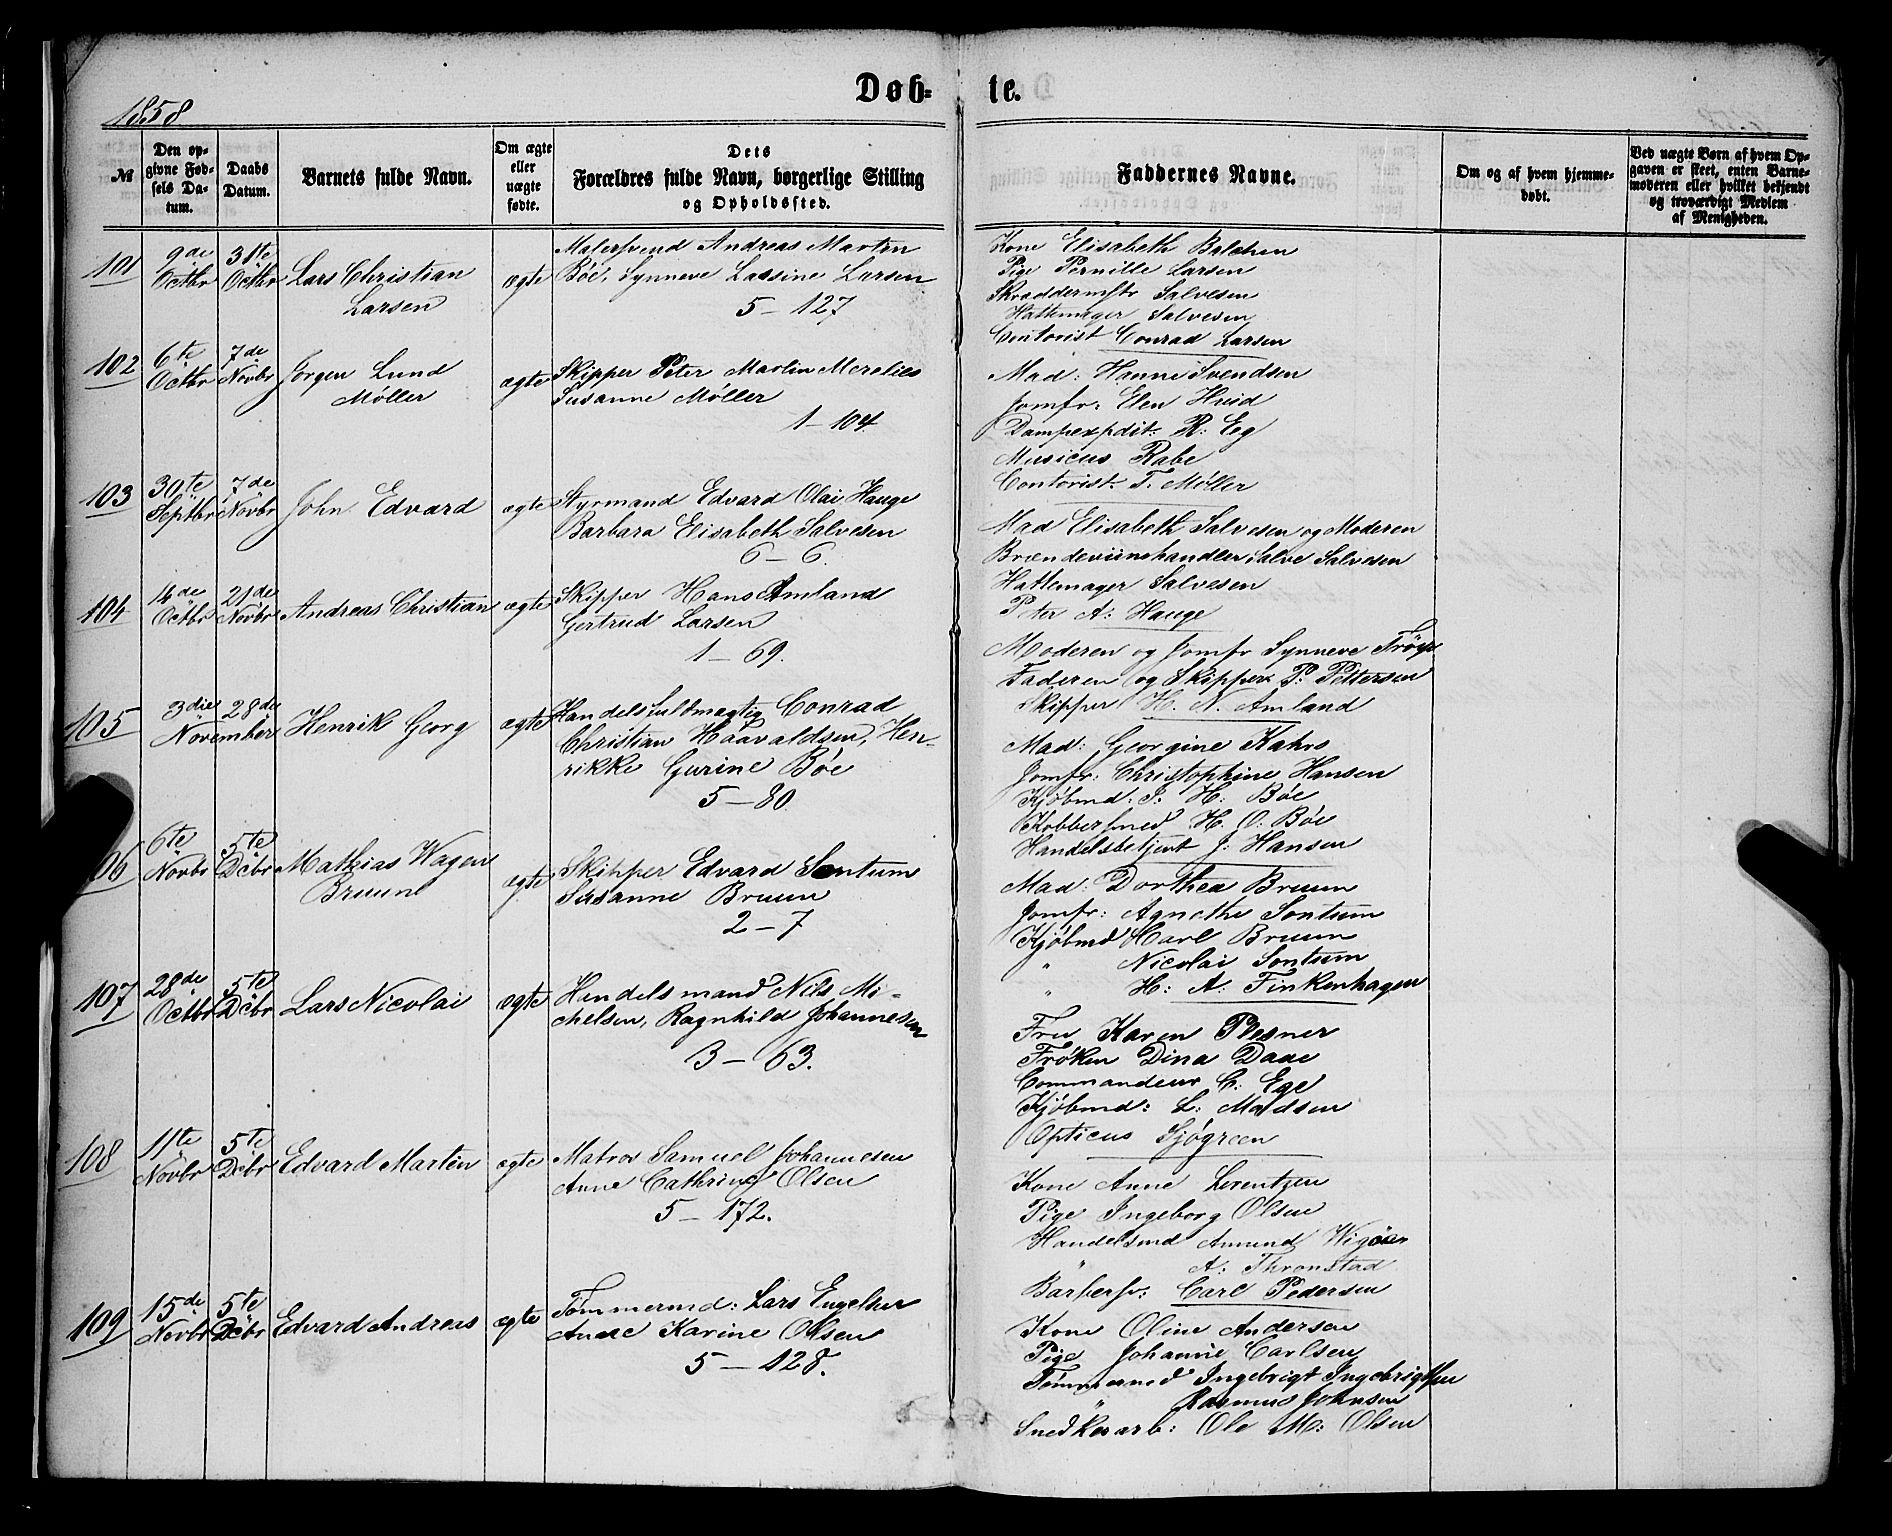 Døb-
te.
1858
№
Den op-
givne Fød-
sels Da-
tum.
Daabs
Datum.
Barnets fulde Navn.
Om ægte
eller
uægte
fødte.
Dets
Forældres fulde Navn, borgerlige Stilling
og Opholdssted.
Faddernes Navne.
Om og af hvem hjemme-
døbt.
Ved uægte Børn af hvem Op-
gaven er skeet, enten Barne-
moderen eller hvilket bekjendt
og troværdigt Medlem
af Menigheden.
101
9de
Octbr
31te
Octbr
Lars Christian
Larsen
ægte
Malersvend Andreas Martin
Bøe, Synneve Lassine Larsen
5 - 127
Kone Elisabeth Balchen
Pige Pernille Larsen
Skræddermstr Salvesen
Hattemager Salvesen
Contorist Conrad Larsen
102
6te
Octbr
7de
Novbr
Jørgen Lund
Møller
ægte
Skipper Peter Martin
Susanne Møller
1 - 104
Mad: Hanne Svendsen
Jomfr: Elen Hviid
Dampexpdit: R: Eeg
Musicus Rabe
Contorist: T. Møller
103
30te
Septbr
7de
Novbr
John Edvard
ægte
Styrmand Edvard Olai Hauge
Barbara Elisabeth Salvesen
6 - 6.
Mad Elisabeth Salvesen og Moderen
Brændeviinshandler Salve Salvesen
Hattemager Salvesen
Peter A: Hauge
104
Octbr
21de
Novbr
Andreas Christian
ægte
Skipper Hans Amland
Gertrud Larsen
1 - 69.
Moderen og Jomfr Synneve
Faderen og Skipper P: Pettersen
Skipper H. N. Amland
105
3die
28de
November
Henrik Georg
ægte
Handelsfuldmægtig Conrad
Christian Haavaldsen, Hen-
rikke Gurine Bøe
5 - 80.
Mad: Georgine Kahrs
Jomfr: Christophine Hansen
Kjøbmd: J. H: Bøe
Kobbersmed H. O. Bøe
Handelsbetjent J: Hansen
106
6te
Novbr
5te
Dcbr
Mathias Wagen
Bruun
ægte
Skipper Edvard Sontum
Susanne Bruun
2 - 7
Mad: Dorthea Bruun
Jomfr: Agnethe Sontum
Kjøbmd Carl Bruun
" Nicolai Sontum
" H: A: Finkenhagen
107
28de
Octbr
5te
Dcbr
Lars Nicolai
ægte
Handelsmand Nils Mi-
chelsen, Ragnhild Johannesen
3 - 63.
Fru Karen Plesner
Frøken Dina Daae
Commandeur C: Ege
Kjøbmd: L: Madsen
Opticus Sjøgreen
108
11te
Novbr
5te
Dcbr
Edvard Martin
ægte
Matros Samuel Johannesen
Anne Cathrine Olsen
5 - 172.
Kone Anne Lorentzen
Pige Ingeborg Olsen
Handelsmd Amund
" A: Thronstad
Barbersv: Carl Pedersen
109
15de
Novbr
5te
Dcbr
Edvard Andreas
ægte
Tømmermd: Lars Engelsen
Anne Karine Olsen
5 - 128.
Kone Oline Andersen
Pige Johanne Carlsen
Tømmermd Ingebrigt Ingebrigtsen
" Rasmus Johnsen
Snedkerarb: Ole M: Olsen